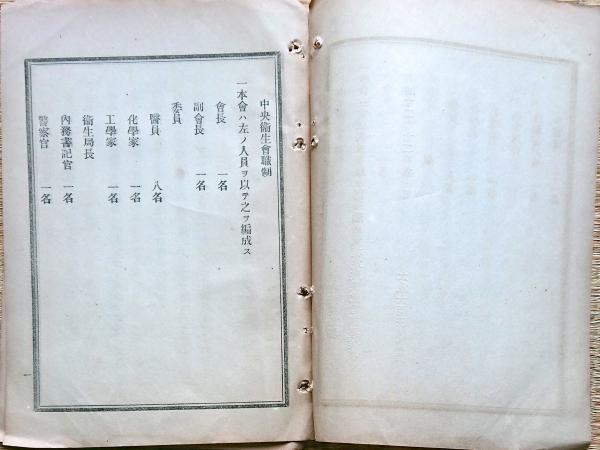 中央衞生會職制
一本會ハ左ノ人員ヲ以テ之ヲ編成ス
會長 一名
副會長 一名
委員
醫員 八名
化學家 一名
工學家 一名
衞生局長
內務書記官 一名
警察官 一名